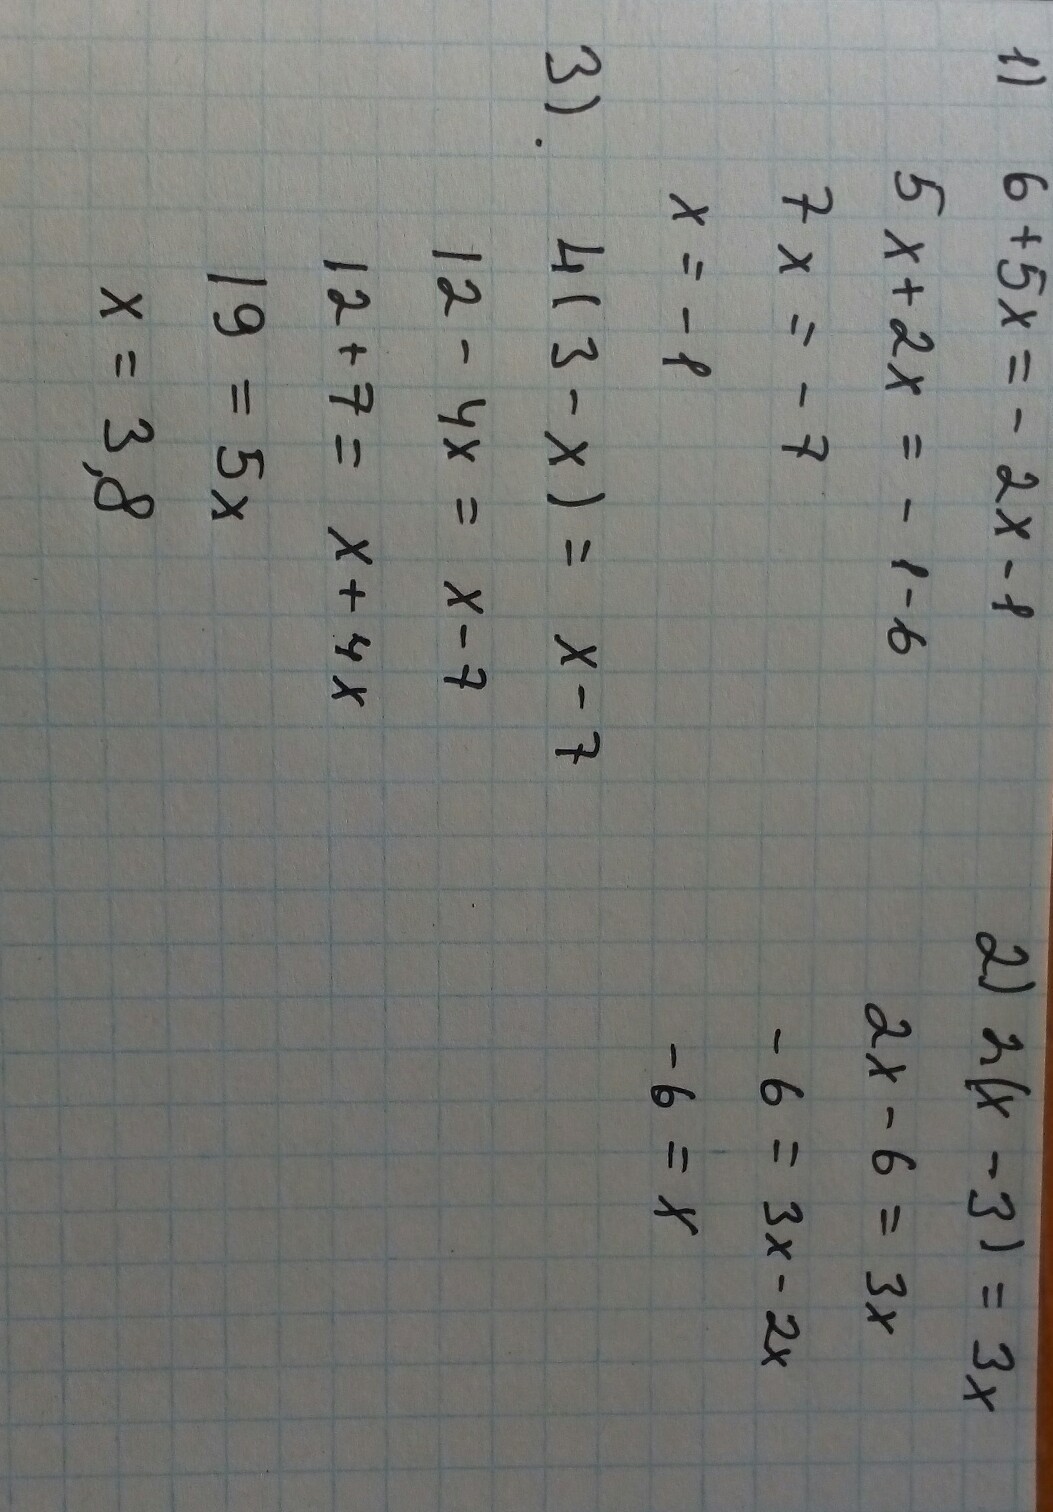 1) 6+5x=-2x-1
5x+2x=-1-6
7x=-7
x=-1
2) 2(x-3)=3x
2x-6=3x
-6=3x-2x
-6=x
3). 4(3-x)=x-7
12-4x=x-7
12+7=x+4x
19=5x
x=3,8